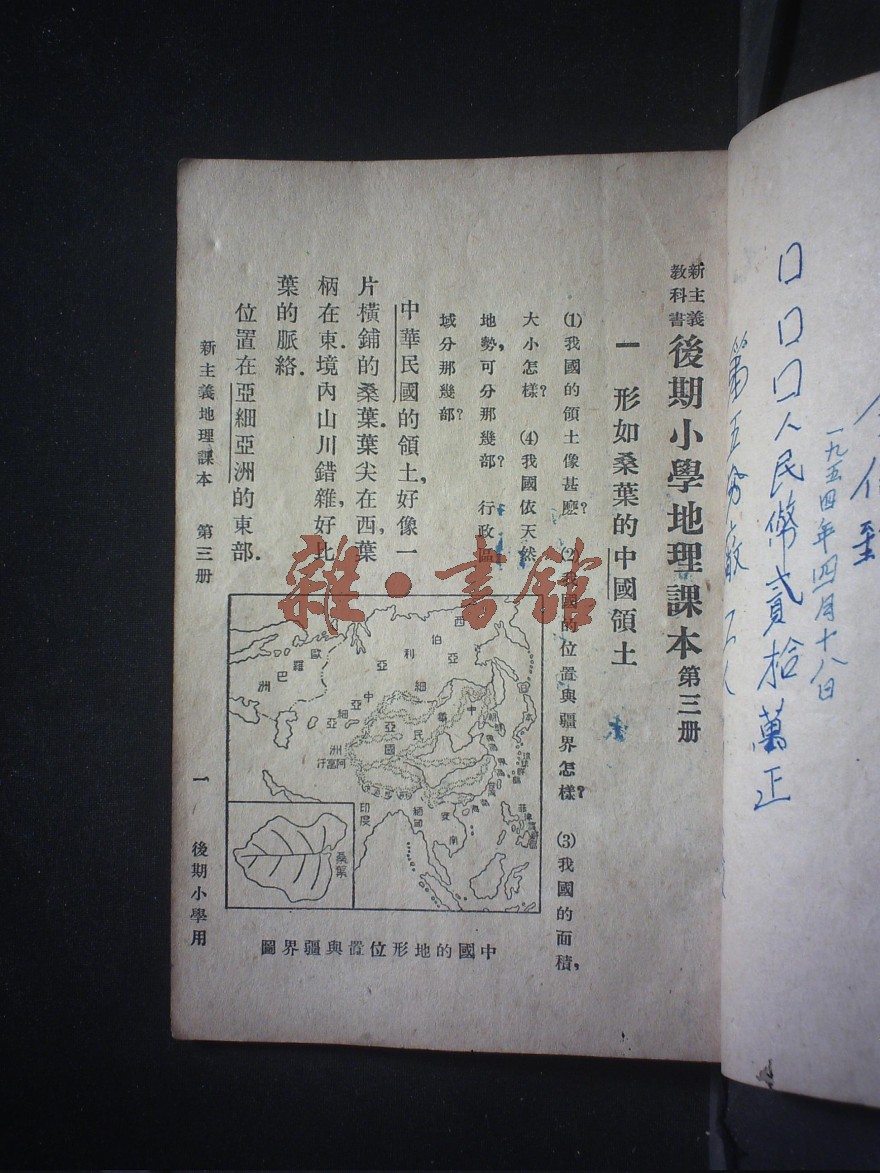 新主義
教科書
後期小學地理課本 第三册
一 形如桑葉的中國領土
(1)我國的領土像甚麽? (2)我國的位置與疆界怎樣? (3)我國的面積,
大小怎樣? (4)我國依天然
地勢,可分那幾部? 行政區
域分那幾部?
中華民國的領土,好像一
片橫鋪的桑葉.葉尖在西,葉
柄在東.境內山川錯雜,好比
葉的脈絡.
位置在亞細亞洲的東部.
新主義地理課本 第三册 一 後期小學用
歐羅巴洲
西伯利亞
亞細亞洲
中華民國
日本
朝鮮
琉球群島
阿富汗
印度
緬甸
安南
桑葉
中國的地形位置與疆界圖
雜·書館
一九五四年四月十八日
口口口人民幣貳拾萬正